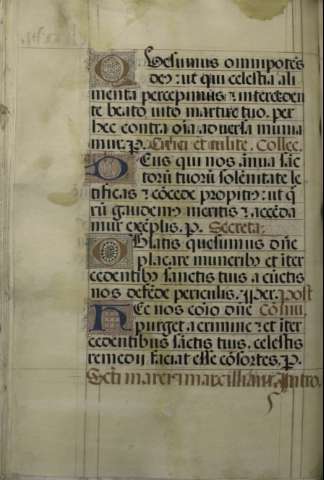 Quesumus omnipotēs
deꝰ: ut qui celestia ali
menta percepimus ⁊ interceden
te beato uito martire tuo. per
hec contra oīa aduersa munia
mur. p. Cirici et iulite. Collec.
Deus qui nos ānua sāc
torū tuorū solēnitate le
tificas ⁊ cōcede propitiꝰ: ut q̄
rū gaudemꝰ meritis ⁊ accēda
mur exēplis. p. Secreta:
Oblatis quesumus dn̄e
placare muneribꝰ et īter
cedentibꝰ sanctis tuis a cūctis
nos defēde periculis. Per. post
Hec nos cōio dn̄e Cōmu.
purget a crimine ⁊ et īter
cedentibus sāctis tuis. celestis
remedii faciat esse cōsortes. P.
Scti marci ⁊ marcilliani. Intro.